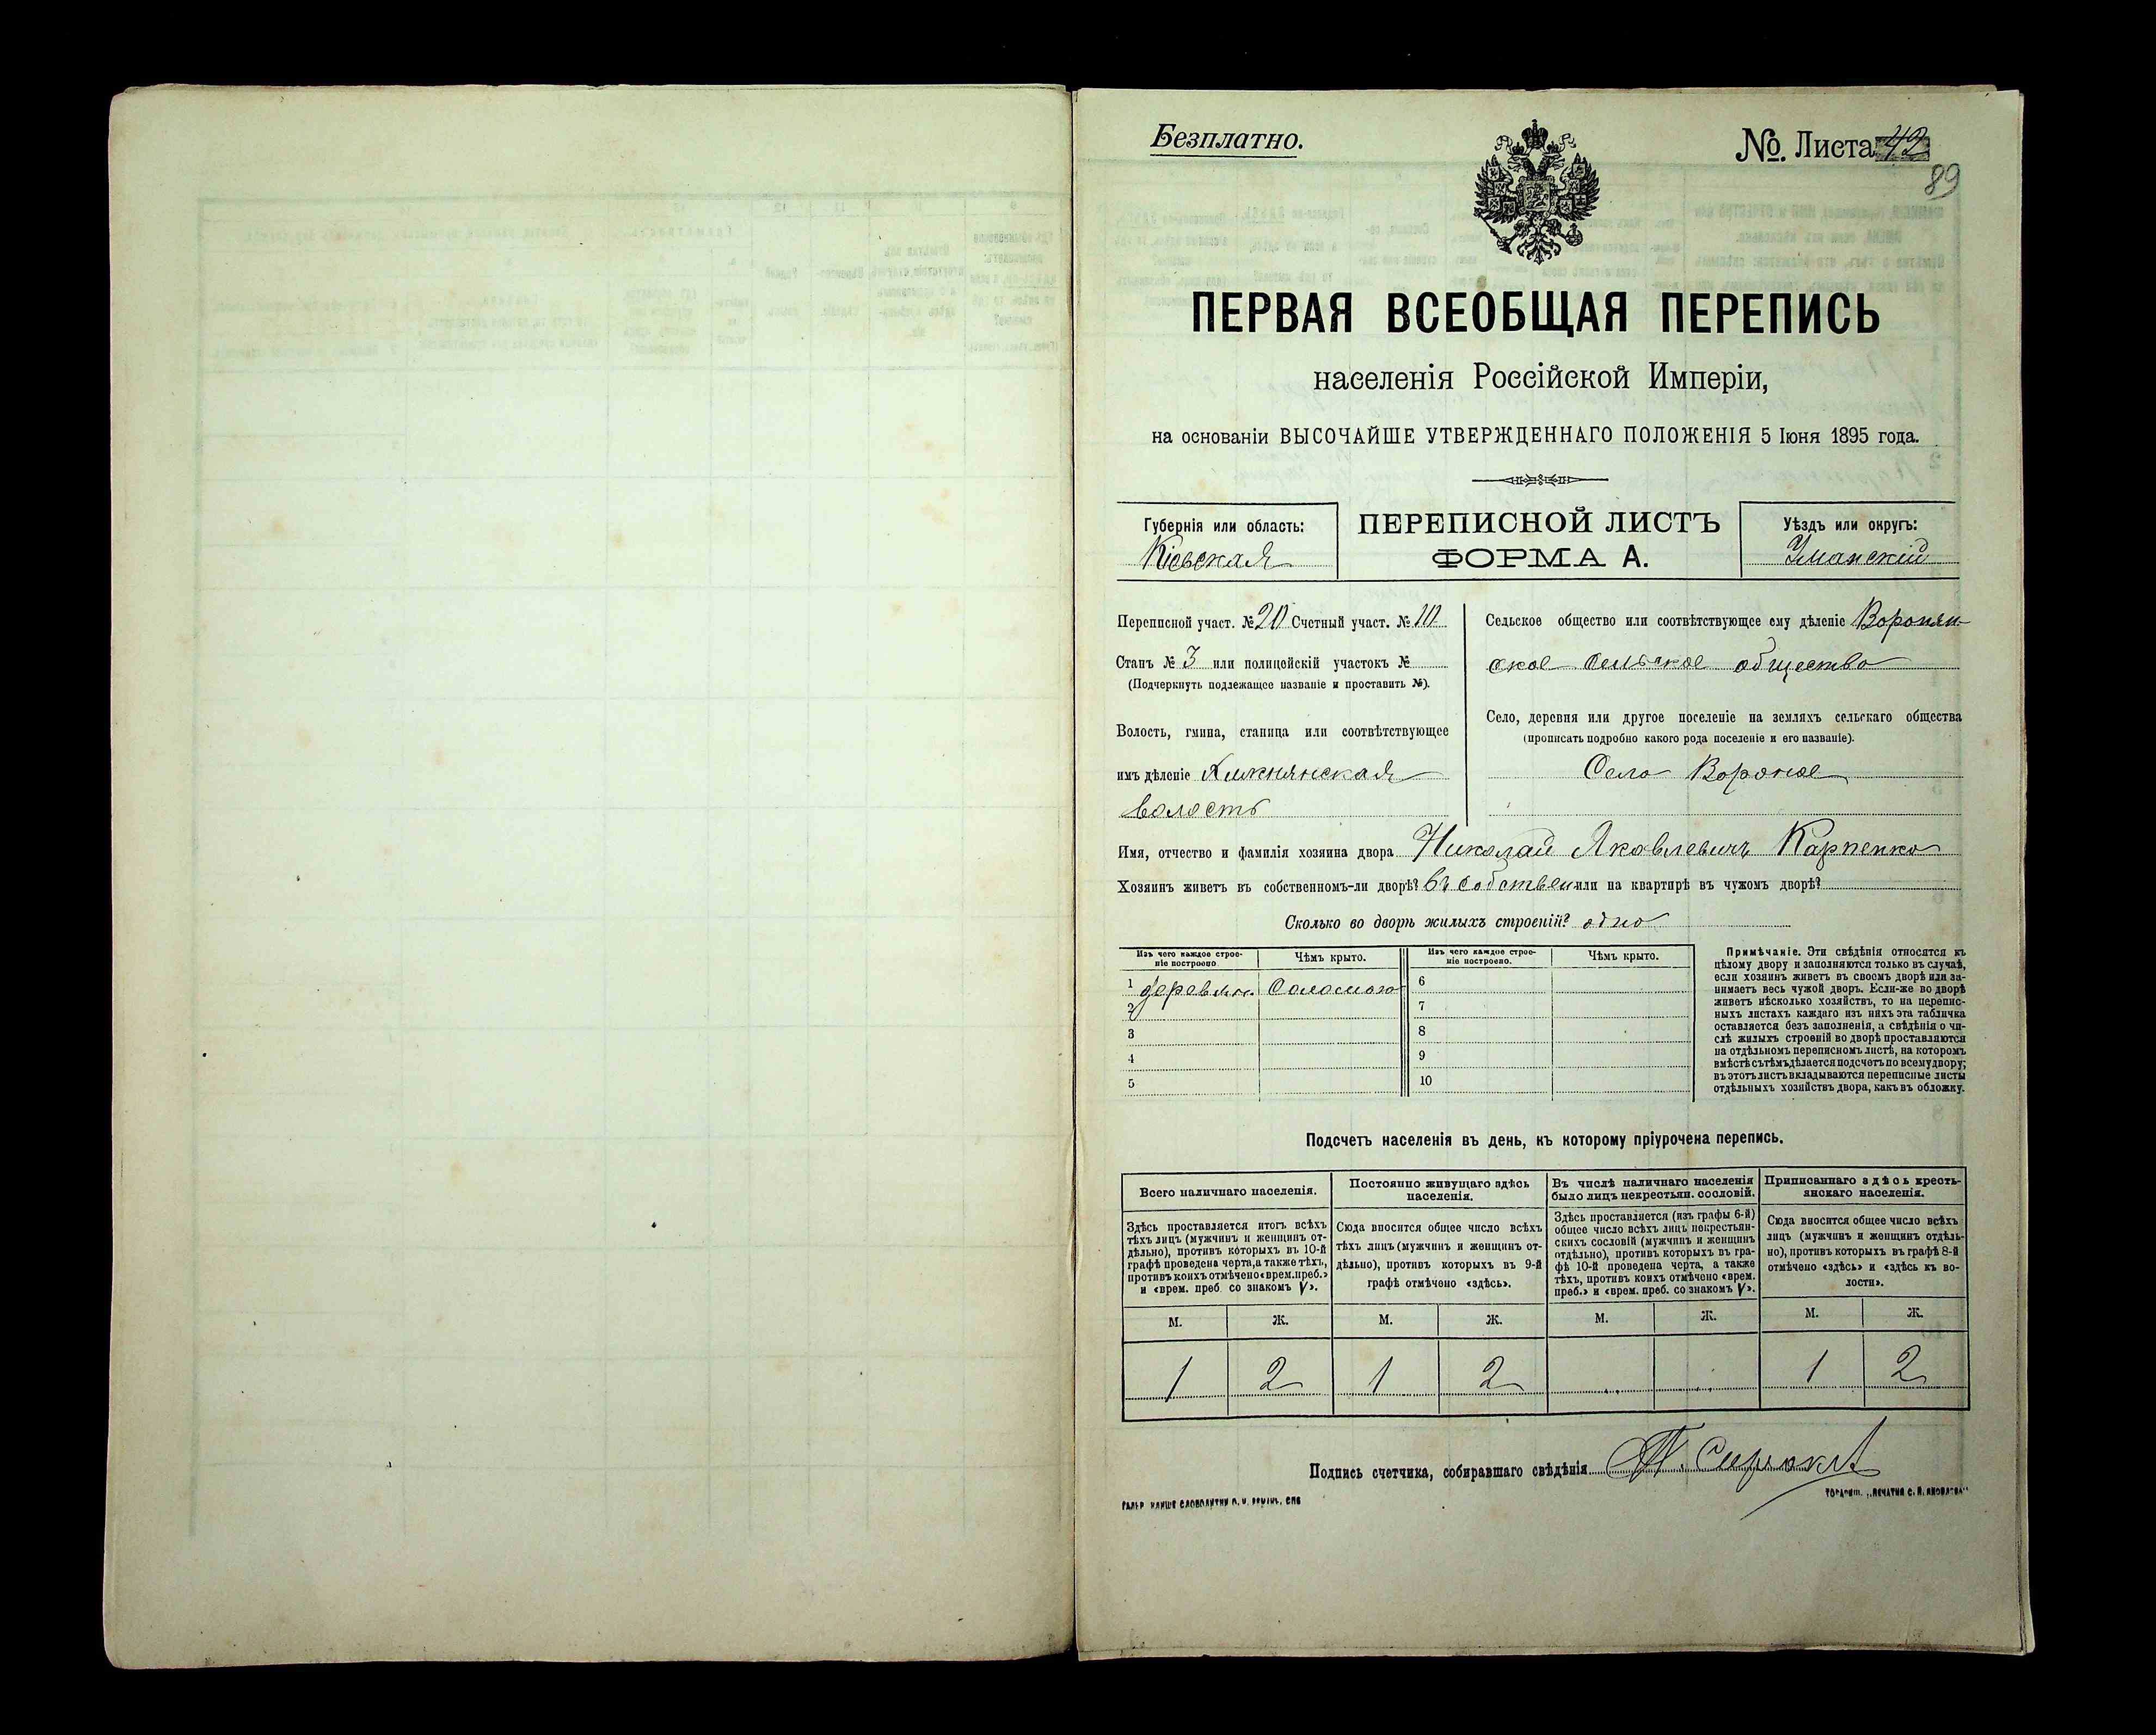 Безплатно.
№. Листа 42
89
ПЕРВАЯ ВСЕОБЩАЯ ПЕРЕПИСЬ
населенія Россійской Имперіи,
на основаніи ВЫСОЧАЙШЕ УТВЕРЖДЕННАГО ПОЛОЖЕНІЯ 5 Іюня 1895 года.
Губернія или область:
Кіевская
ПЕРЕПИСНОЙ ЛИСТЪ
ФОРМА А.
Уѣздъ или округъ:
Уманскій
Переписной участ. № 20 Счетный участ. № 10
Станъ № 3 или полицейскій участокъ №
(Подчеркнуть подлежащее названіе и проставить №).
Волость, гмина, станица или соотвѣтствующее
имъ дѣленіе
волость
Сельское общество или соотвѣтствующее ему дѣленіе Воронян-
ское сельское общество
Село, деревня или другое поселеніе на земляхъ сельскаго общества
(прописать подробно какого рода поселеніе и его названіе).
Село Вороное
Имя, отчество и фамилія хозяина двора Николай Яковлевичъ Карпенко
Хозяинъ живетъ въ собственномъ-ли дворѣ? въ собствен или на квартирѣ въ чужомъ дворѣ?
Сколько во дворѣ жилыхъ строеній? одно
Изъ чего каждое строе-
ніе построено.
Чѣмъ крыто.
1 деревян. Соломою
2
3
4
5
Изъ чего каждое строе-
ніе построено.
Чѣмъ крыто.
6
7
8
9
10
Примѣчаніе. Эти свѣдѣнія относятся къ
цѣлому двору и заполняются только въ случаѣ,
если хозяинъ живетъ въ своемъ дворѣ или за-
нимаетъ весь чужой дворъ. Если-же во дворѣ
живетъ нѣсколько хозяйствъ, то на перепис-
ныхъ листахъ каждаго изъ нихъ эта табличка
оставляется безъ заполненія, а свѣдѣнія о чи-
слѣ жилыхъ строеній во дворѣ проставляются
на отдѣльномъ переписномъ листѣ, на которомъ
вмѣстѣ съ тѣмъ дѣлается подсчетъ по всему двору;
въ этотъ листъ вкладываются переписные листы
отдѣльныхъ хозяйствъ двора, какъ въ обложку.
Подсчетъ населенія въ день, къ которому пріурочена перепись.
Всего наличнаго населенія.
Здѣсь проставляется итогъ всѣхъ
тѣхъ лицъ (мужчинъ и женщинъ от-
дѣльно), противъ которыхъ въ 10-й
графѣ проведена черта, а также тѣхъ,
противъ коихъ отмѣчено «врем. преб.»
и «врем. преб. со знакомъ V».
М. Ж.
1 2
Постоянно живущаго здѣсь
населенія.
Сюда вносится общее число всѣхъ
тѣхъ лицъ (мужчинъ и женщинъ от-
дѣльно), противъ которыхъ въ 9-й
графѣ отмѣчено «здѣсь».
М. Ж.
1 2
Въ числѣ наличнаго населенія
было лицъ некрестьян. сословій.
Здѣсь проставляется (изъ графы 6-й)
общее число всѣхъ лицъ некрестьян-
скихъ сословій (мужчинъ и женщинъ
отдѣльно), противъ которыхъ въ гра-
фѣ 10-й проведена черта, а также
тѣхъ, противъ коихъ отмѣчено «врем.
преб.» и «врем. преб. со знакомъ V».
М. Ж.
Приписаннаго здѣсь кресть-
янскаго населенія.
Сюда вносится общее число всѣхъ
лицъ (мужчинъ и женщинъ отдѣль-
но), противъ которыхъ въ графѣ 8-й
отмѣчено «здѣсь» и «здѣсь къ во-
лости».
М. Ж.
1 2
Подпись счетчика, собиравшаго свѣдѣнія